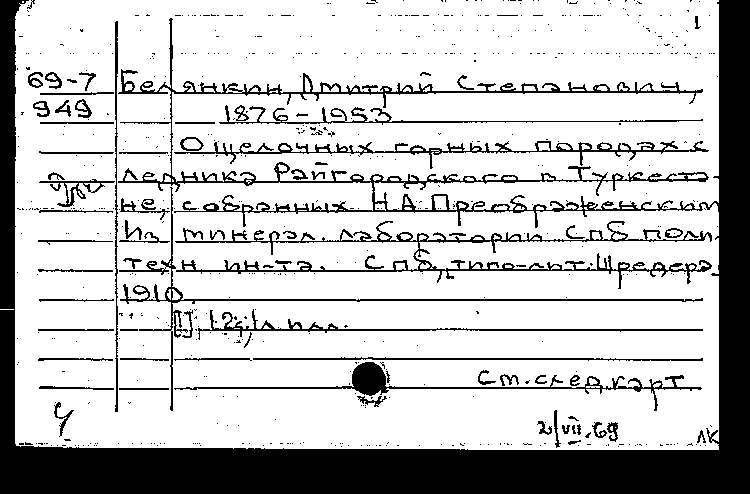 1
69-7 Белянкин, Дмитрий Степанович,
949 1876-1953
О щелочных горных породах с
ледника Райгородского в Туркеста-
не, собранных Н.А. Преображенским
Из минерал. лаборатории СПб поли-
техн. ин-та. СПб, типо-лит. Шредера
1910.
[1], 12 с., 1 л илл.
См. след карт.
2/VII.69 ЛК